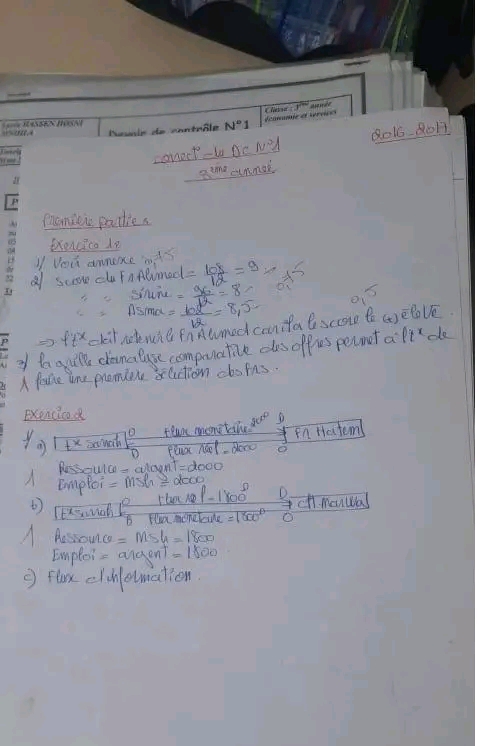 Lycée HASSEN HOSNI
Devoir de contrôle N°1
Classe : 3ème année
économie et services
2016-2017
correct° du DC N°1
3ème année
Première partie
Exercice 1:
1/ Voir annexe
2/ Score du Fr Ahmed = 108/12 = 9
" " Sirine = 96/12 = 8
" " Asma = 102/12 = 8,5
0,5
=> l'Ex doit retenir le Fr Ahmed car il a le score le (+) élevé.
3/ la grille d'analyse comparative des offres permet à l'Ex de
1 faire une première sélection des Frs.
Exercice 2
1/ a) Ex sarrah O Flux monétaire 2000 D Fr Hatem
D Flux réel = 2000 O
1 Ressource = argent = 2000
Emploi = Msh = 2000
b) Ex sarrah O Flux réel = 1800 D Clt. Marwa
D Flux monétaire = 1800 O
1 Ressource = Msh = 1800
Emploi = argent = 1800
c) Flux d'information.